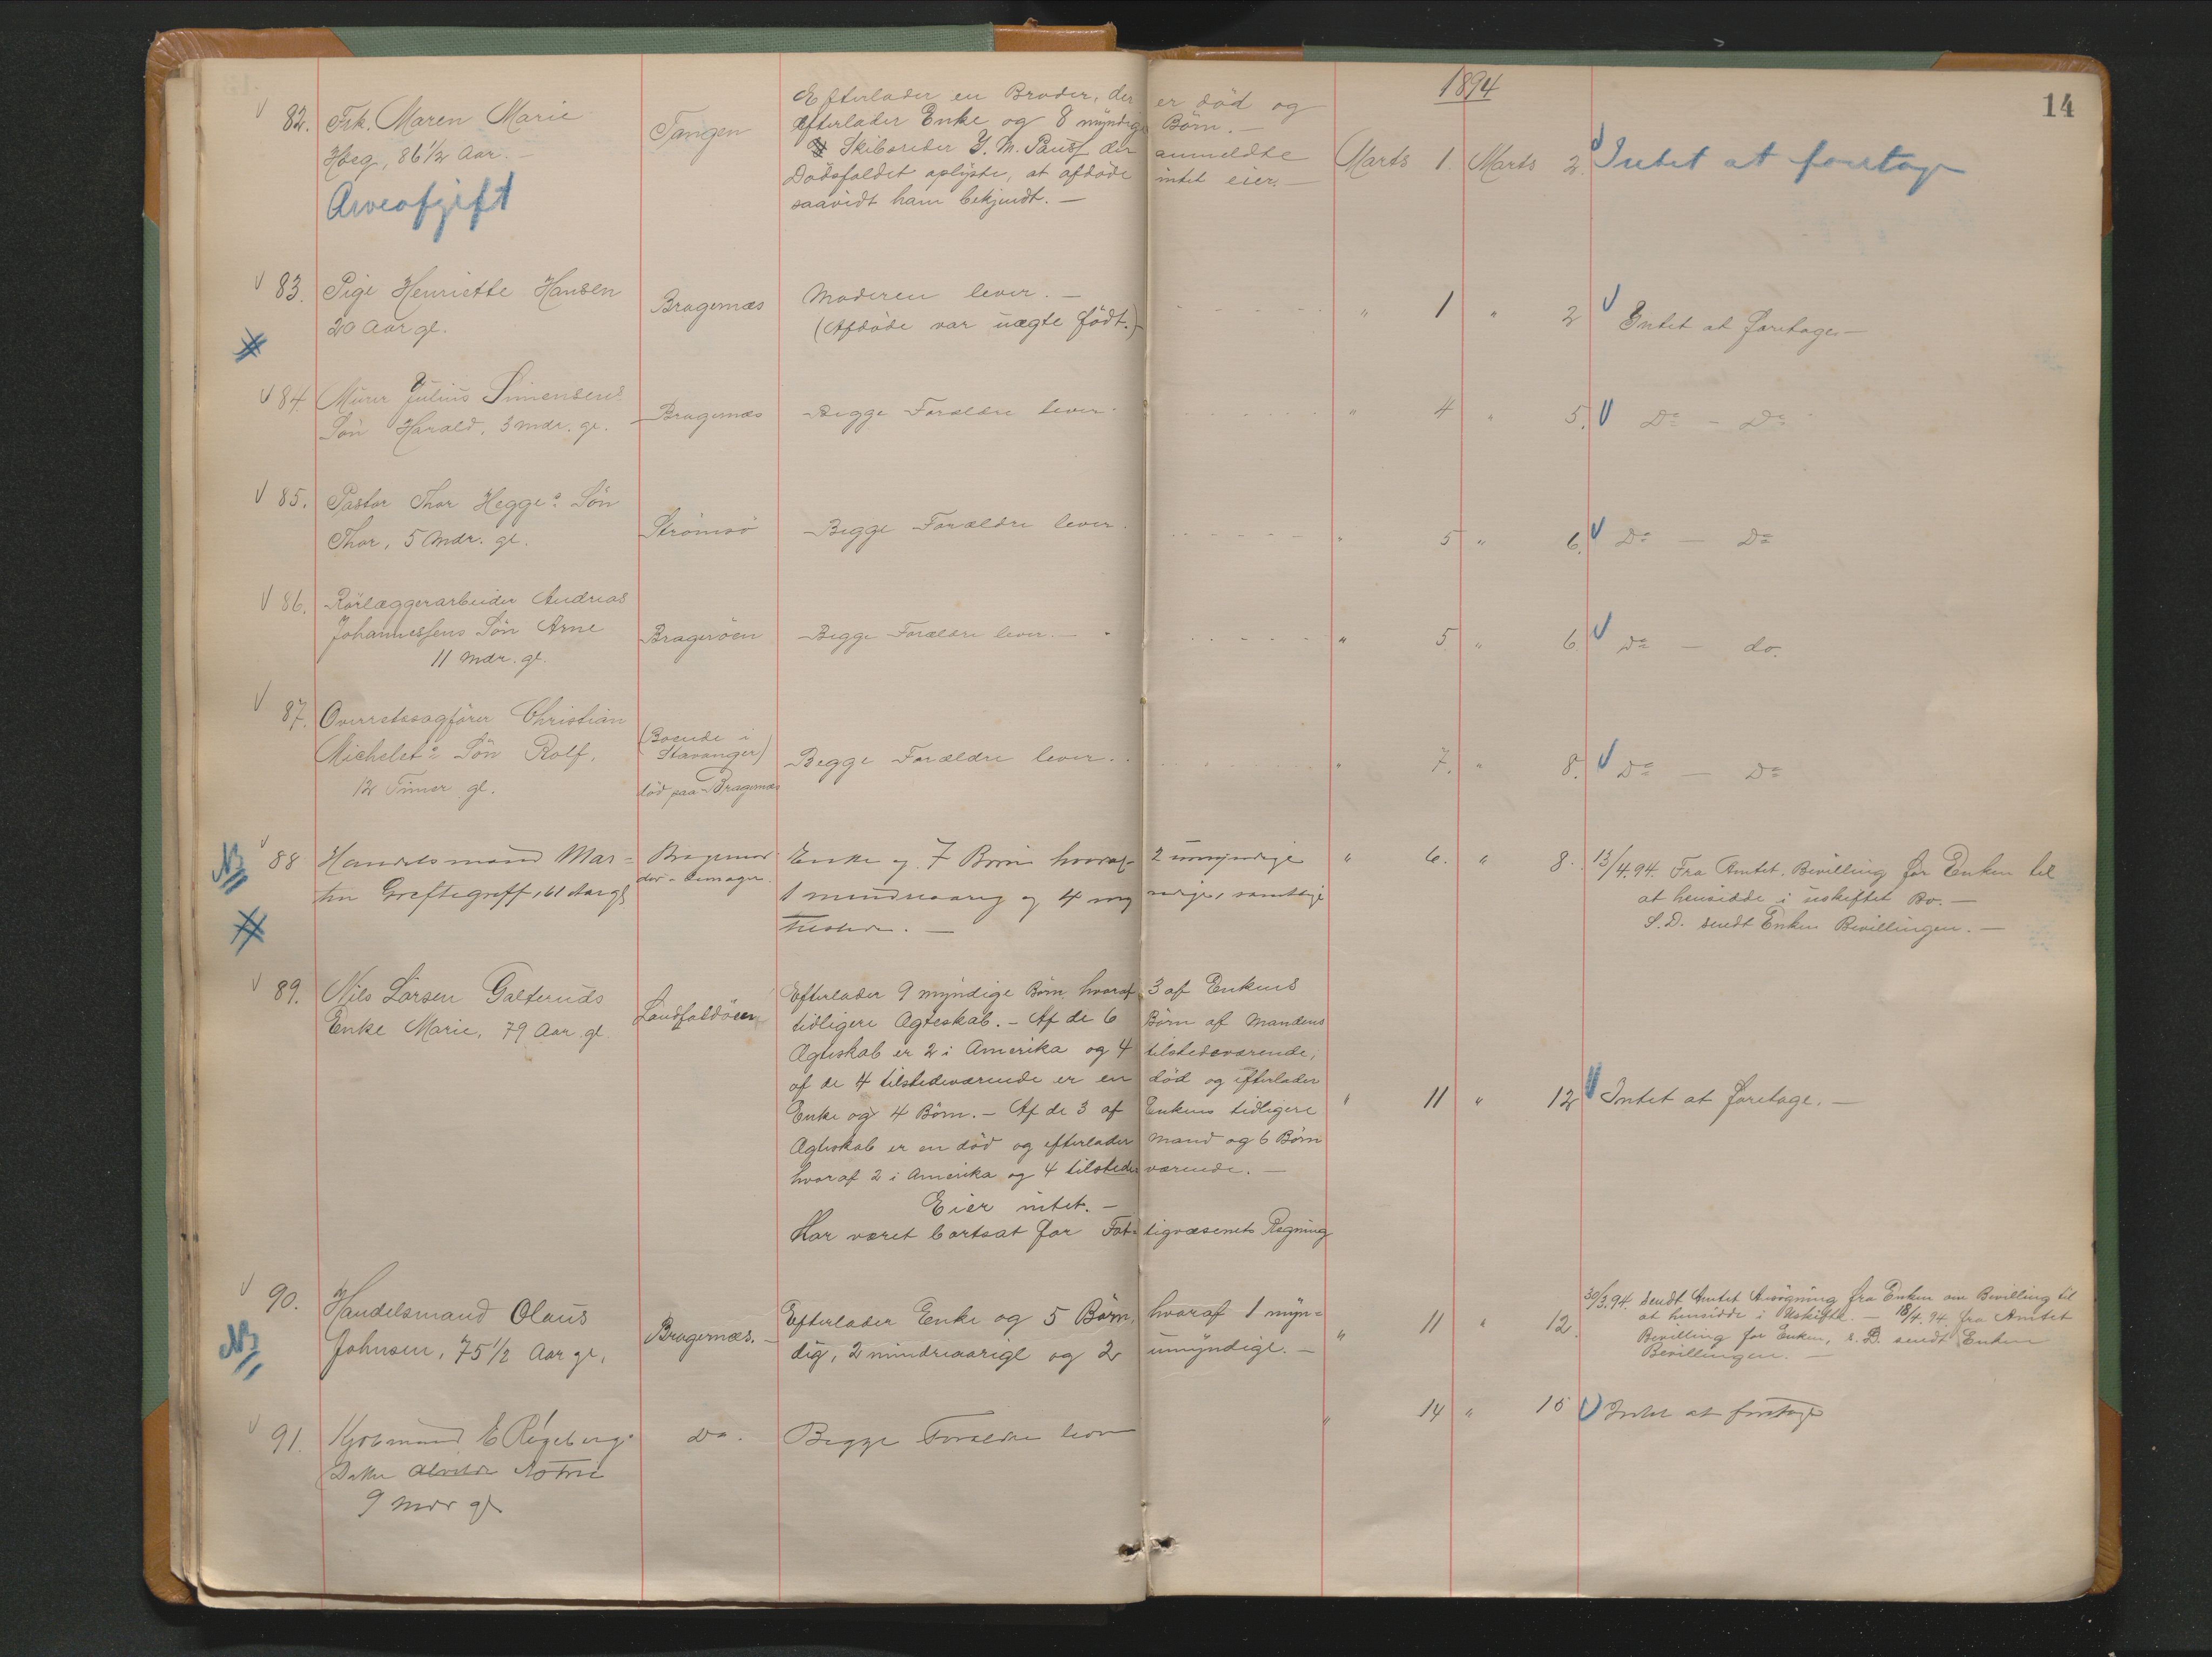 1894
14
82. Frk. Maren Marie
Høeg, 86 1/2 Aar. —
Arveafgift
Tangen
Efterlader en Broder, der er död og
efterlader Enke og 8 myndige Börn. —
Skibsreder I. N. Pauss der anmeldte
Dödsfaldet oplyste, at afdöde intet eier —
saavidt ham bekjendt. —
Marts 1 Marts 2. Intet at foretage
83. Pige Henriette Hansen
20 Aar gl.
Bragernæs
Moderen lever. —
(Afdöde var uægte födt.)
" 1 " 2 Intet at foretage. —
84. Murer Julius Simensens
Sön Harald, 3 Mdr. gl.
Bragernæs
Begge Forældre lever.
" 4 " 5. Do — Do
85. Pastor Thor Hegges Sön
Thor, 5 Mdr. gl.
Strömsö
Begge Forældre lever.
" 5 " 6. Do — Do
86. Rörlæggerarbeider Andreas
Johannessens Sön Arne
11 Mdr. gl.
Bragerøen
Begge Forældre lever. —
" 5 " 6 Do — do.
87. Overretssagförer Christian
Michelets Sön Rolf,
12 Timer gl.
(Boende i
Stavanger)
död paa Bragernæs
Begge Forældre lever.
" 7. " 8. Do — Do
NB
88 Handelsmand Mar=
tin Greftegreff, 61 Aar gl
Bragernæs
Enke og 7 Börn hvoraf 2 umyndige
1 mindreaarig og 4 myndige, samtlige
tilstede. —
" 6. " 8. 13/4.94. Fra Amtet, Bevilling for Enken til
at hensidde i uskiftet Bo. —
S. D. sendt Enken Bevillingen. —
89. Nils Larsen Galteruds
Enke Marie, 79 Aar gl.
Landfaldöen
Efterlader 9 myndige Börn, hvoraf 3 af Enkens
tidligere Ægteskab. — Af de 6 Börn af Mandens
Ægteskab er 2 i Amerika og 4 tilstedeværende,
af de 4 tilstedeværende er en död og efterlader
Enke og 4 Börn. — Af de 3 af Enkens tidligere
Ægteskab er en död og efterlader Mand og 6 Börn
hvoraf 2 i Amerika og 4 tilstedeværende. —
Eier intet. —
Har været bortsat for Fattigvæsenets Regning
" 11 " 12 Intet at foretage. —
NB
90. Handelsmand Olaus
Johnsen, 75 1/2 Aar gl.
Bragernæs. —
Efterlader Enke og 5 Börn, hvoraf 1 myn=
dig, 2 mindreaarige og 2 umyndige. —
" 11 " 12. 30/3.94. Sendt Amtet Ansögning fra Enken om Bevilling til
at hensidde i Uskiftet. — 18/4.94. fra Amtet
Bevilling for Enken, s. D. sendt Enken
Bevillingen. —
91. Kjöbmand E Rigebergs
Datter
9 mdr gl
Do.
Begge Forældre lever
" 14 " 15 Intet at foretage